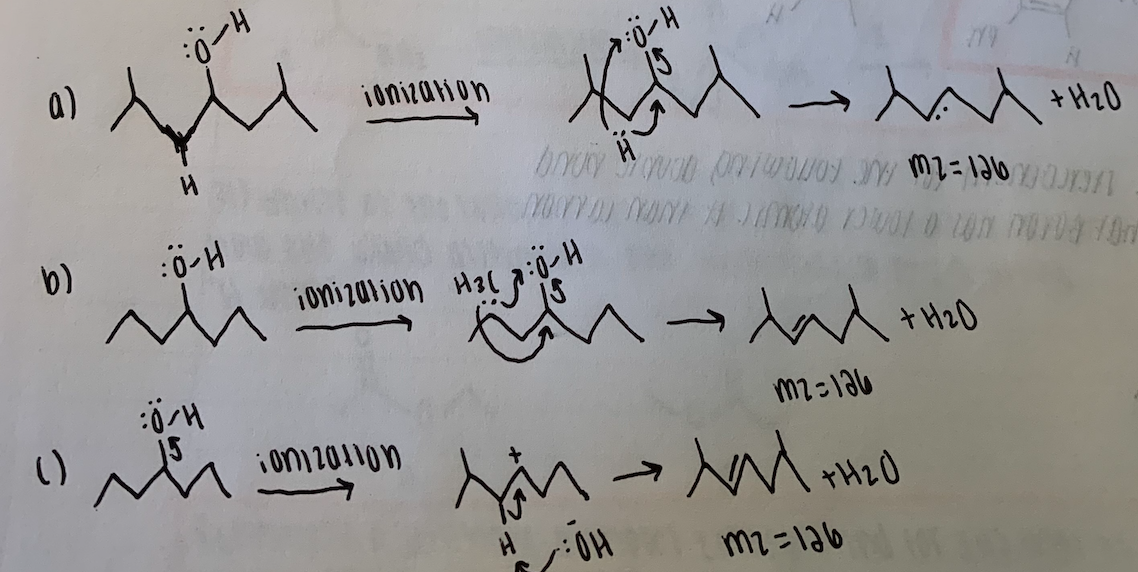 :Ö-H :Ö-H
a) ionization + H2O
H Ḧ mz=126
b) :Ö-H ionization H3C :Ö-H + H2O
mz=126
:Ö-H
c) ionization + + H2O
H :ŌH mz=126